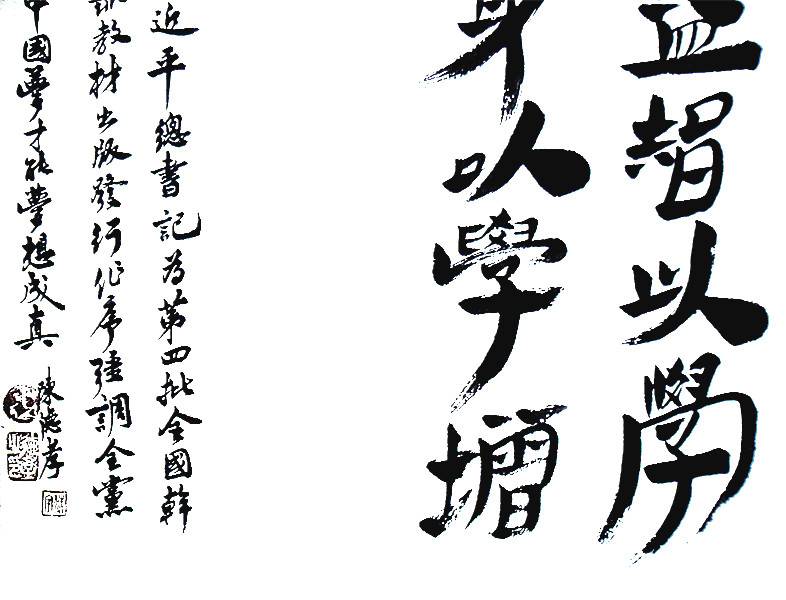 益智以學
身以學增
近平總書記為第四批全國幹
訓教材出版發行作序強調全黨
中國夢才能夢想成真
陳德孝